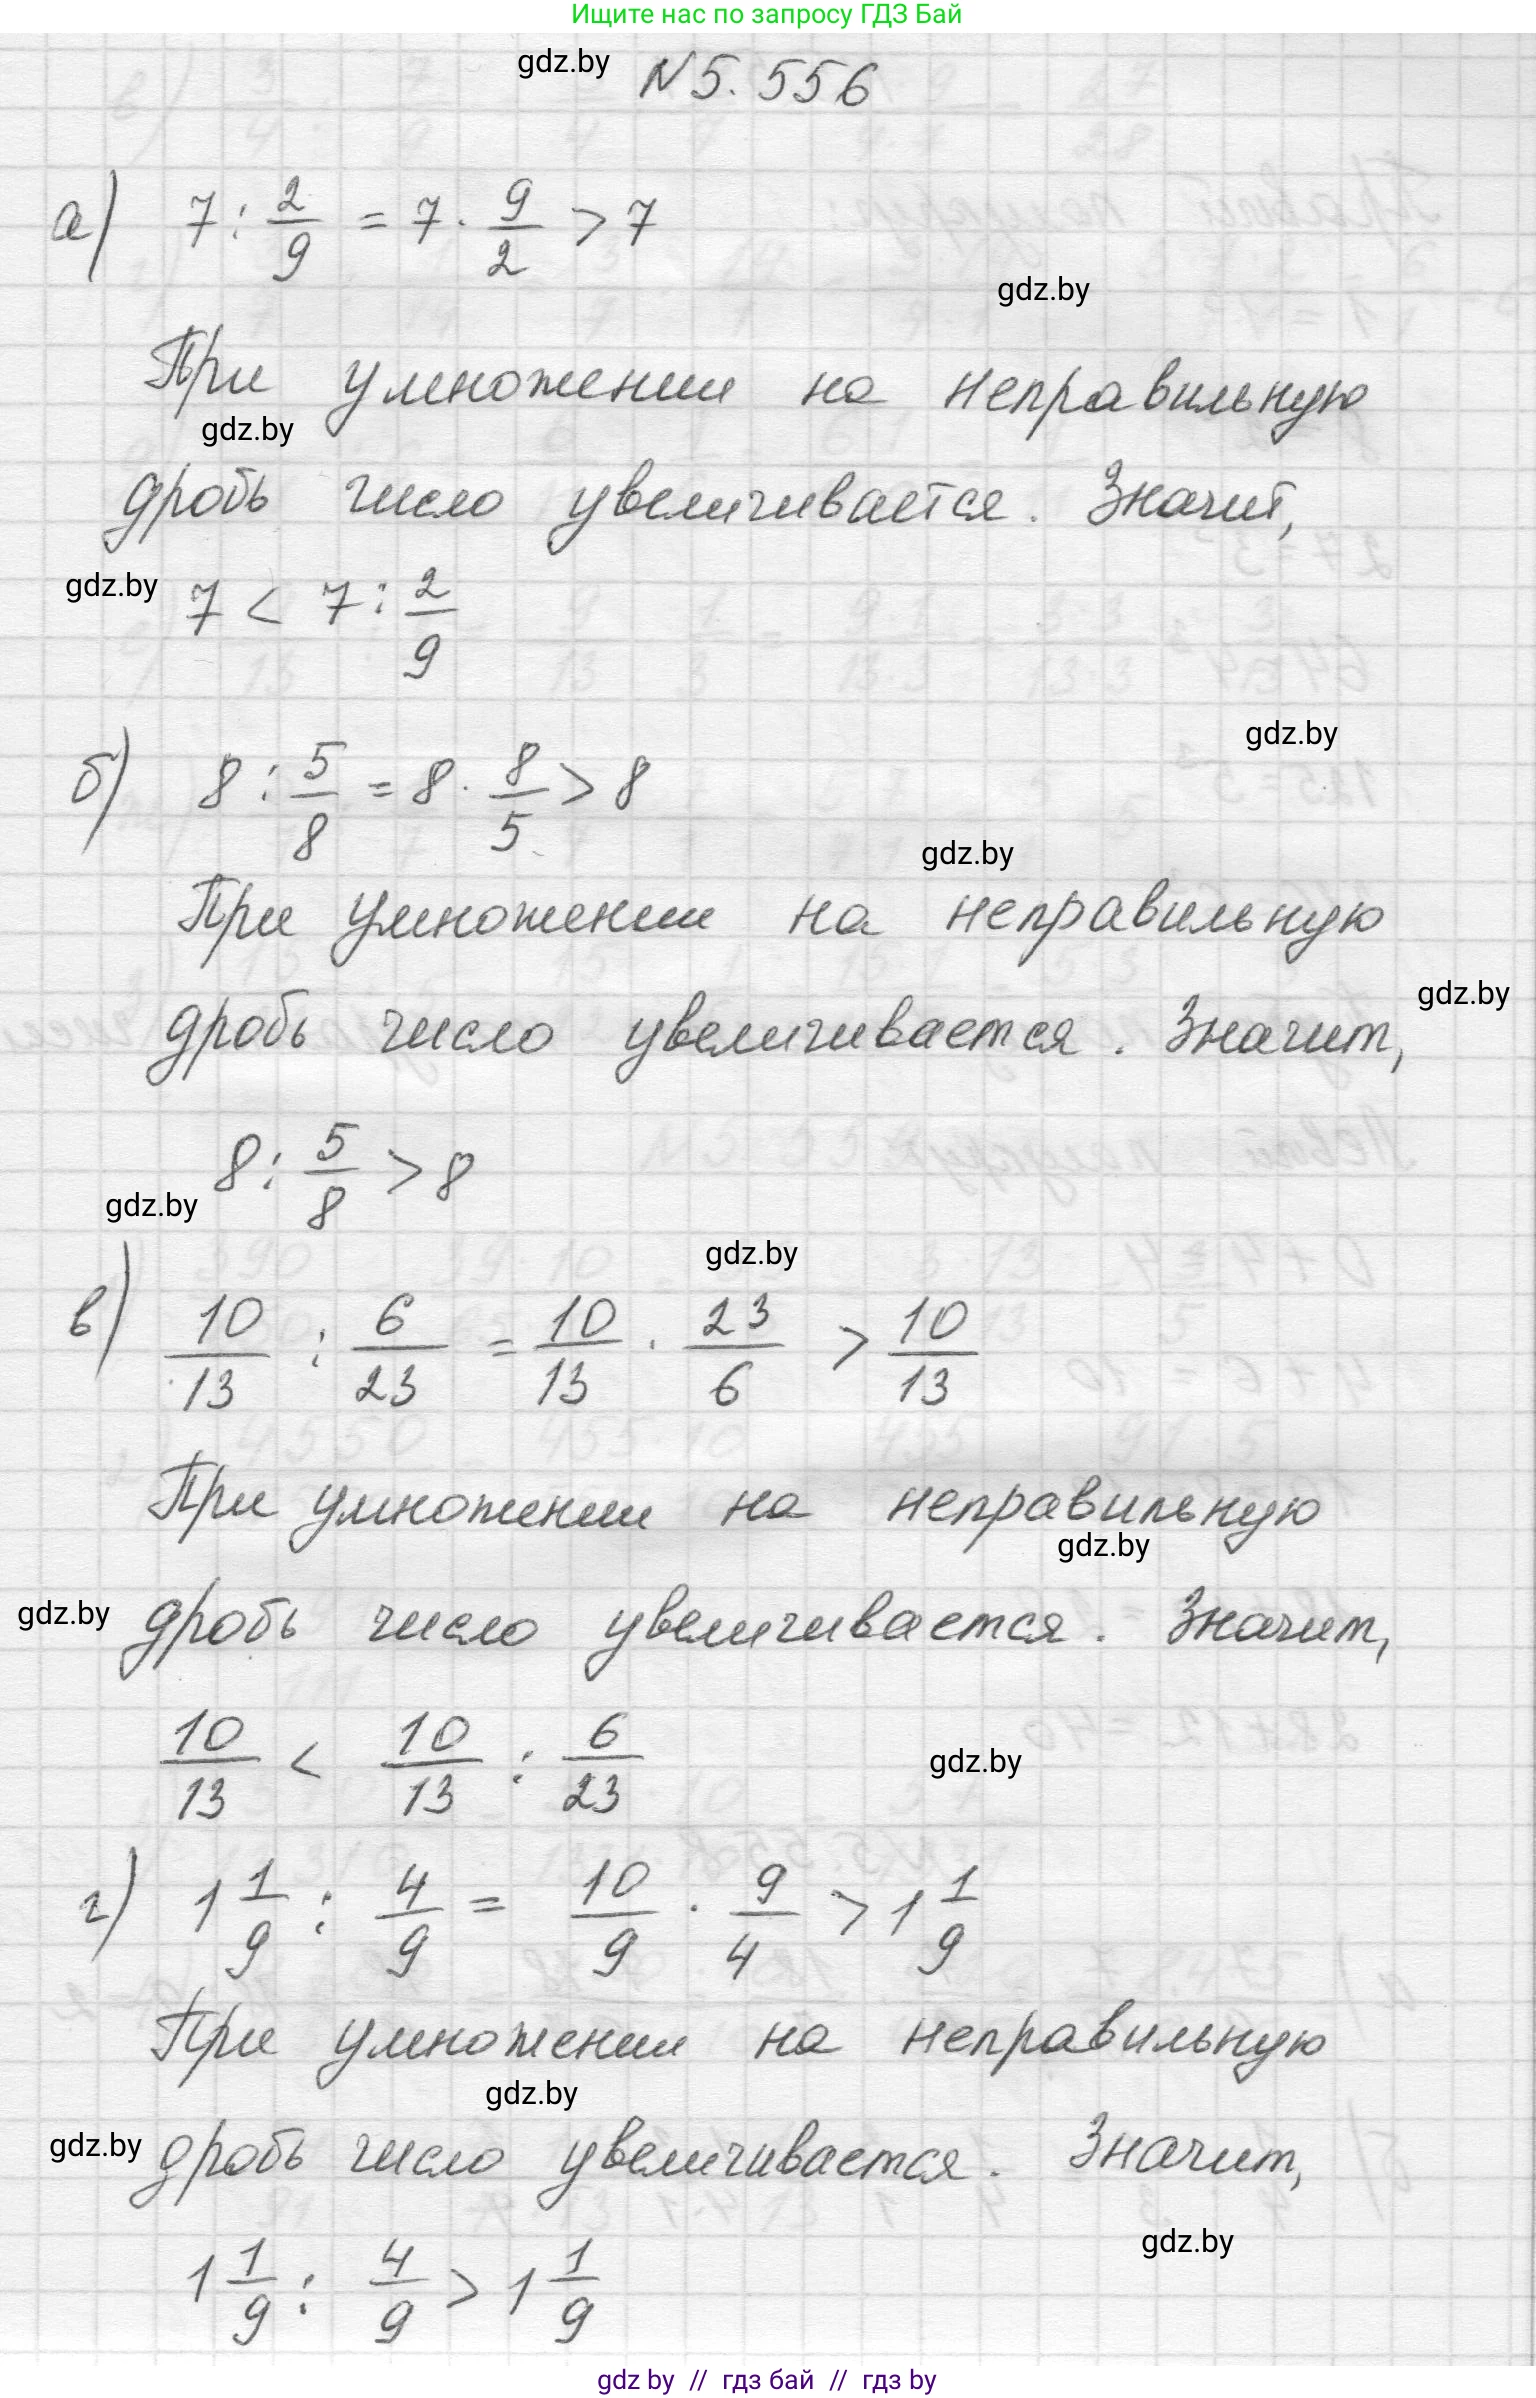 Ищите нас по запросу ГДЗ Бай
gdz.by
N 5. 556
а) 7 : 2/9 = 7 · 9/2 > 7
gdz.by
При умножении на неправильную
gdz.by
дробь число увеличивается. Значит,
gdz.by
7 < 7 : 2/9
gdz.by
б) 8 : 5/8 = 8 · 8/5 > 8
gdz.by
При умножении на неправильную
gdz.by
дробь число увеличивается. Значит,
8 : 5/8 > 8
gdz.by
gdz.by
в) 10/13 : 6/23 = 10/13 · 23/6 > 10/13
При умножении на неправильную
gdz.by
gdz.by
дробь число увеличивается. Значит,
10/13 < 10/13 : 6/23
gdz.by
г) 1 1/9 : 4/9 = 10/9 · 9/4 > 1 1/9
При умножении на неправильную
gdz.by
gdz.by
дробь число увеличивается. Значит,
gdz.by
1 1/9 : 4/9 > 1 1/9
gdz by // гдз бай // гдз by